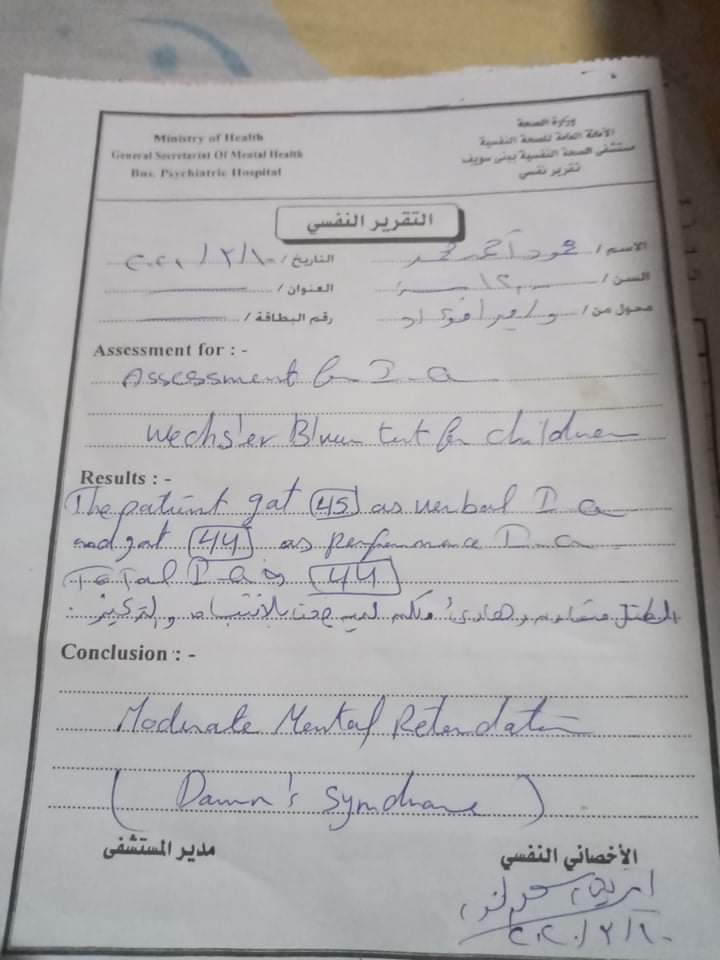 Ministry of Health
General Secretariat Of Mental Health
Bns. Psychiatric Hospital
وزارة الصحة
الأمانة العامة للصحة النفسية
مستشفى الصحة النفسية ببنى سويف
تقرير نفسي
التقرير النفسي
الاسم / محمود أحمد محمد
التاريخ / ٢٠٢٠/٢/١٠
السن / ١٢ سنة
العنوان /
محول من /
رقم البطاقة /
Assessment for : -
Assessment for I-Q
Wechsler test for children
Results : -
The patient gat 45 as verbal I Q
and gat 44 as performance I-Q
Total I-Q is 44
الطفل وهادئ ولكم لديه بالانتباه والتركيز.
Conclusion : -
Moderate Mental Retardation
(Dawn's Syndrome)
الأخصائي النفسي
مدير المستشفى
٢٠٢٠/٢/١٠